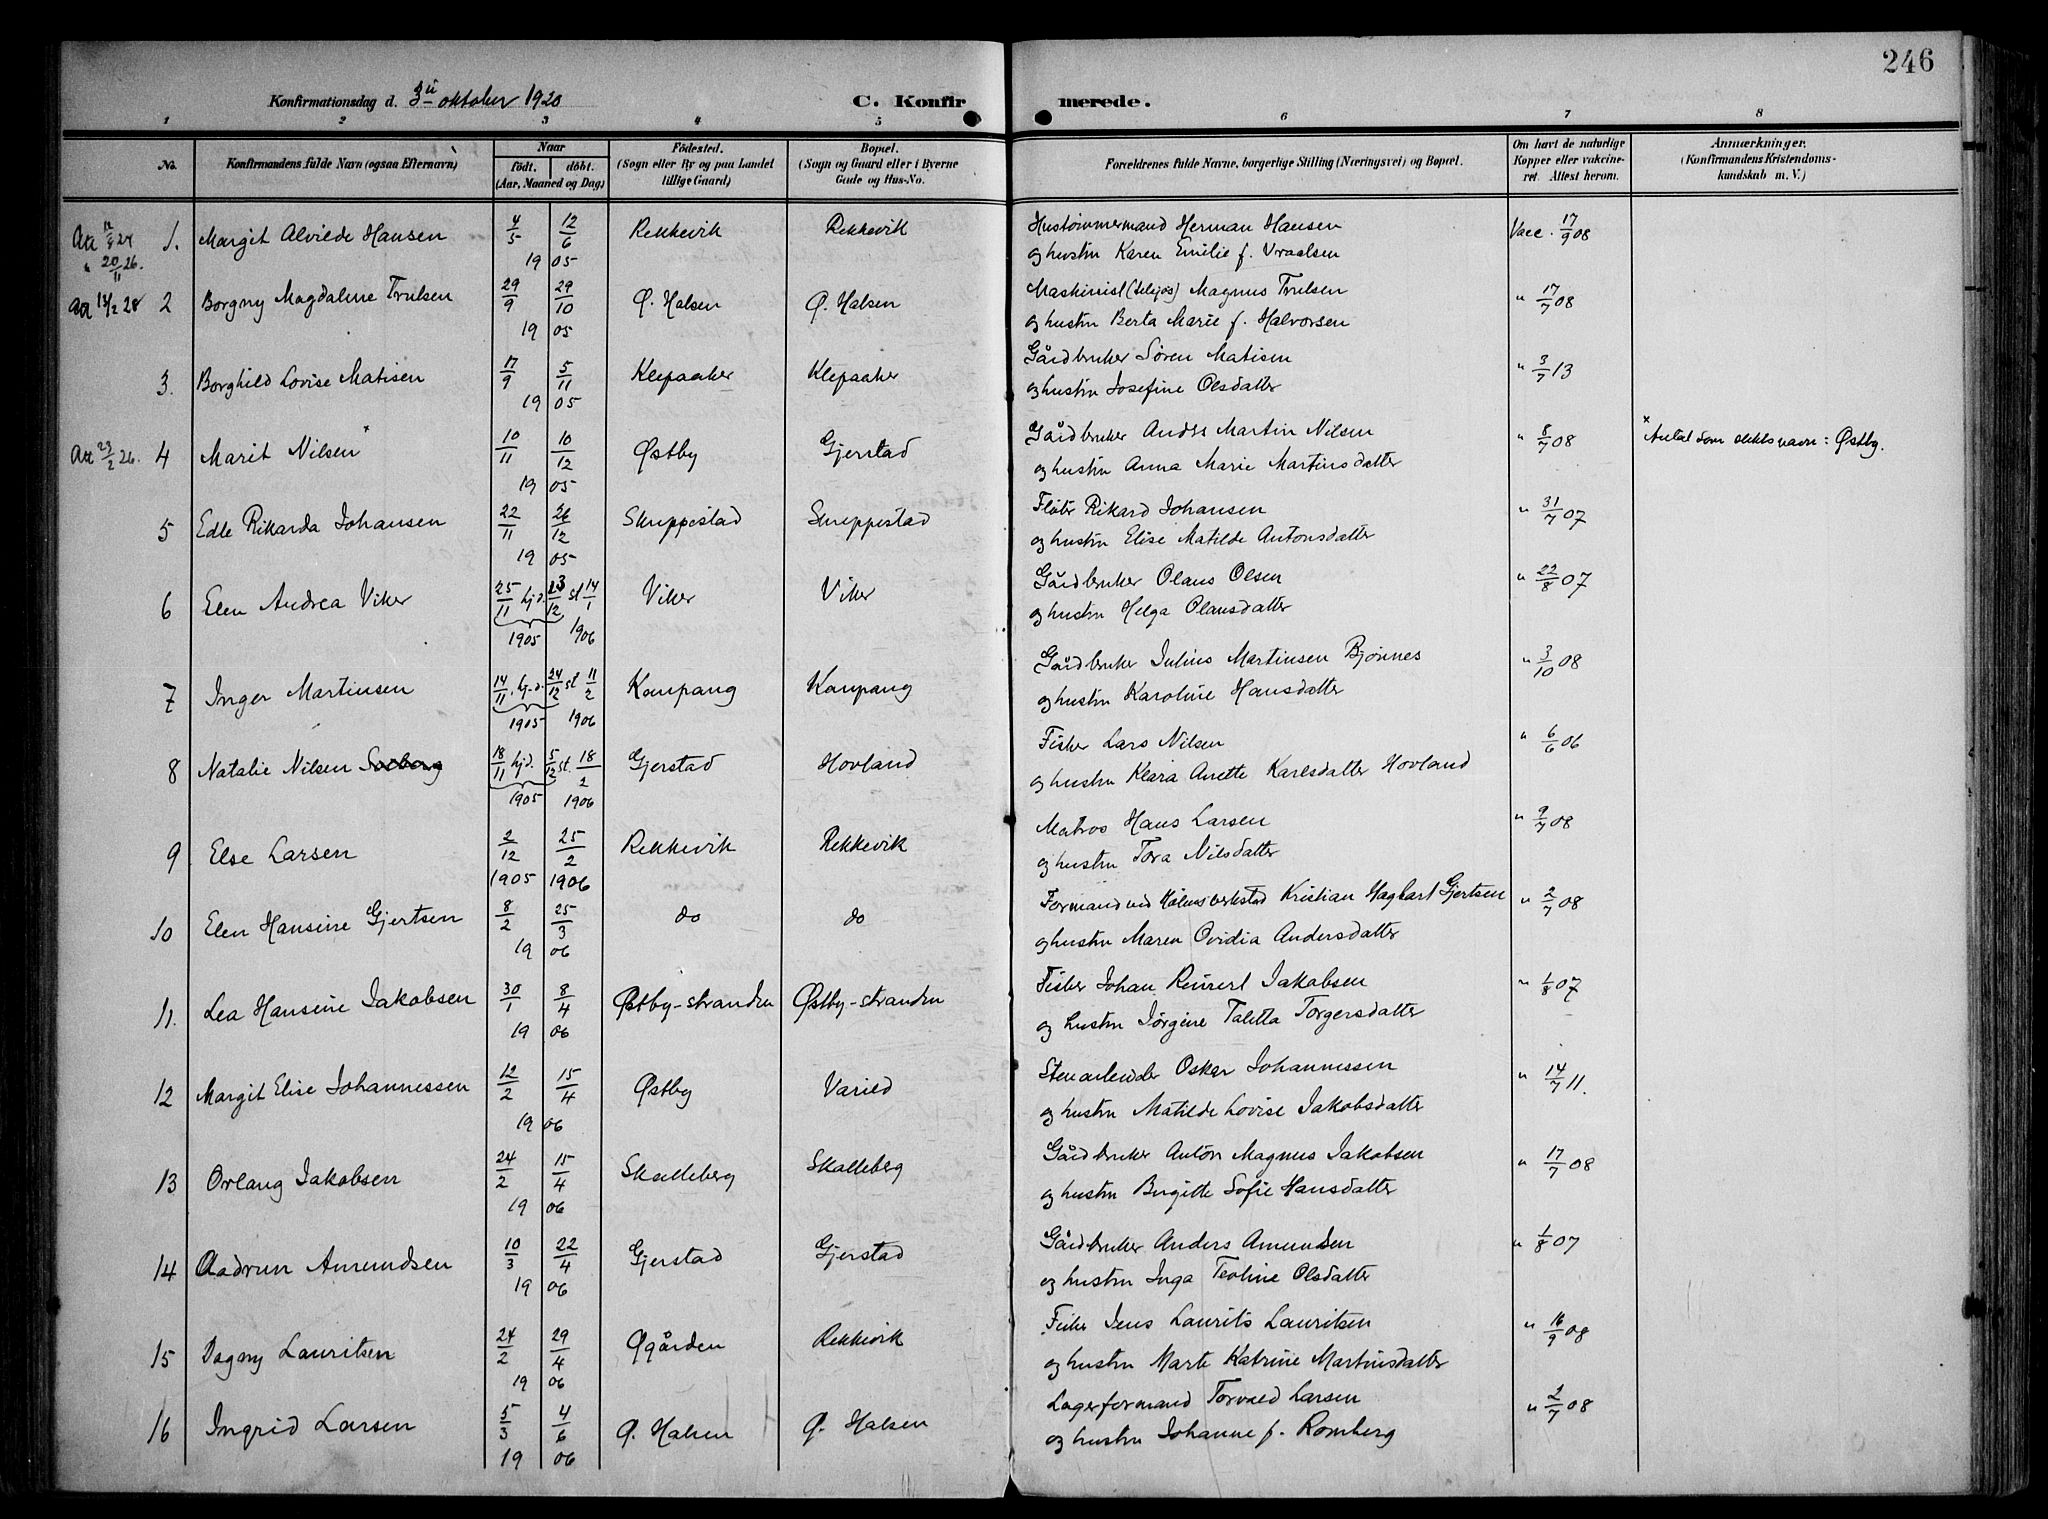 246
Konfirmationsdag d. 3 oktober 1920
C. Konfir merede.
1 2 3 4 5 6 7 8
No. Konfirmandens fulde Navn (ogsaa Efternavn)
Naar født. døbt. (Aar, Maaned og Dag)
Födested. (Sogn eller By og paa Landet tillige Gaard)
Bopæl. (Sogn og Gaard eller i Byerne Gade og Hus-No.
Forældrenes fulde Navne, borgerlige Stilling (Næringsvei) og Bopæl.
Om havt de naturlige Kopper eller vakcineret. Attest herom.
Anmærkninger. (Konfirmandens Kristendomskundskab m. V.)
20/11 26.
1. Margit Alvilde Hansen 4/5 12/6 1905 Rekkevik Rekkevik Hustømmermand Herman Hansen Vacc. 17/9 08
og hustru Karen Emilie f. Vraalsen
2 Borgny Magdalene Trulsen 29/9 29/10 1905 Ø. Halsen Ø. Halsen Maskinist Magnus Trulsen " 17/7 08
og hustru Berta Marie f. Halvorsen
3. Borghild Lovise Matisen 17/9 5/11 1905 Klepaaker Klepaaker Gårdbruker Søren Matisen " 3/7 13
og hustru Josefine Olsdatter
Att 23/2 26. 4 Marit Nilsen x 10/11 10/12 1905 Østby Gjerstad Gårdbruker Anders Martin Nilsen " 8/7 08 x Antat som slektsnavn: Østby.
og hustru Anna Marie Martinsdatter
5 Edle Rikarda Johansen 22/11 26/12 1905 Skreppestad Skreppestad Fløter Rikard Johansen " 31/7 07
og hustru Elise Matilde Antonsdatter
6 Elen Andrea Viker 25/11 hjd. 23/12 st 14/1 1905 1906 Viker Viker Gårdbruker Olaus Olsen " 22/8 07
og hustru Helga Olausdatter
7 Inger Martinsen 14/11 hjd. 24/12 st 11/2 1905 1906 Kaupang Kaupang Gårdbruker Julius Martinsen Bjønnes " 3/10 08
og hustru Karoline Hansdatter
8 Natalie Nilsen 18/11 hjd. 5/12 st. 18/2 1905 1906 Gjerstad Hovland Fisker Lars Nilsen " 6/6 06
og hustru Klara Anette Karlsdatter Hovland
9 Else Larsen 2/12 25/2 1905 1906 Rekkevik Rekkevik Matros Hans Larsen " 9/7 08
og hustru Tora Nilsdatter
10 Elen Hansine Gjertsen 8/2 25/3 1906 do do Formand ved Kølens verksted Kristian Hagbart Gjertsen " 2/7 08
og hustru Maren Ovidia Andersdatter
11. Lea Hansine Jakobsen 30/1 8/4 1906 Østby-stranden Østby-stranden Fisker Johan Reinert Jakobsen " 1/8 07
og hustru Jørgine Taletta Torgersdatter
12 Margit Elise Johannessen 12/2 15/4 1906 Østby Varild Stenarbeider Oskar Johannessen " 14/7 11.
og hustru Matilde Lovise Jakobsdatter
13 Orlaug Jakobsen 24/2 15/4 1906 Skalleberg Skalleberg Gårdbruker Anton Magnus Jakobsen " 17/7 08
og hustru Birgitte Sofie Hansdatter
14 Aadrun Amundsen 10/3 22/4 1906 Gjerstad Gjerstad Gårdbruker Anders Amundsen " 1/8 07
og hustru Inga Teoline Olsdatter
15 Dagny Lauritsen 24/2 29/4 1906 Øgården Rekkevik Fisker Jens Laurits Lauritsen " 16/9 08
og hustru Marte Katrine Martinsdatter
16 Ingrid Larsen 5/3 4/6 1906 Ø. Halsen Ø. Halsen Lagerformand Torvald Larsen " 2/7 08
og hustru Johanne f. Romberg